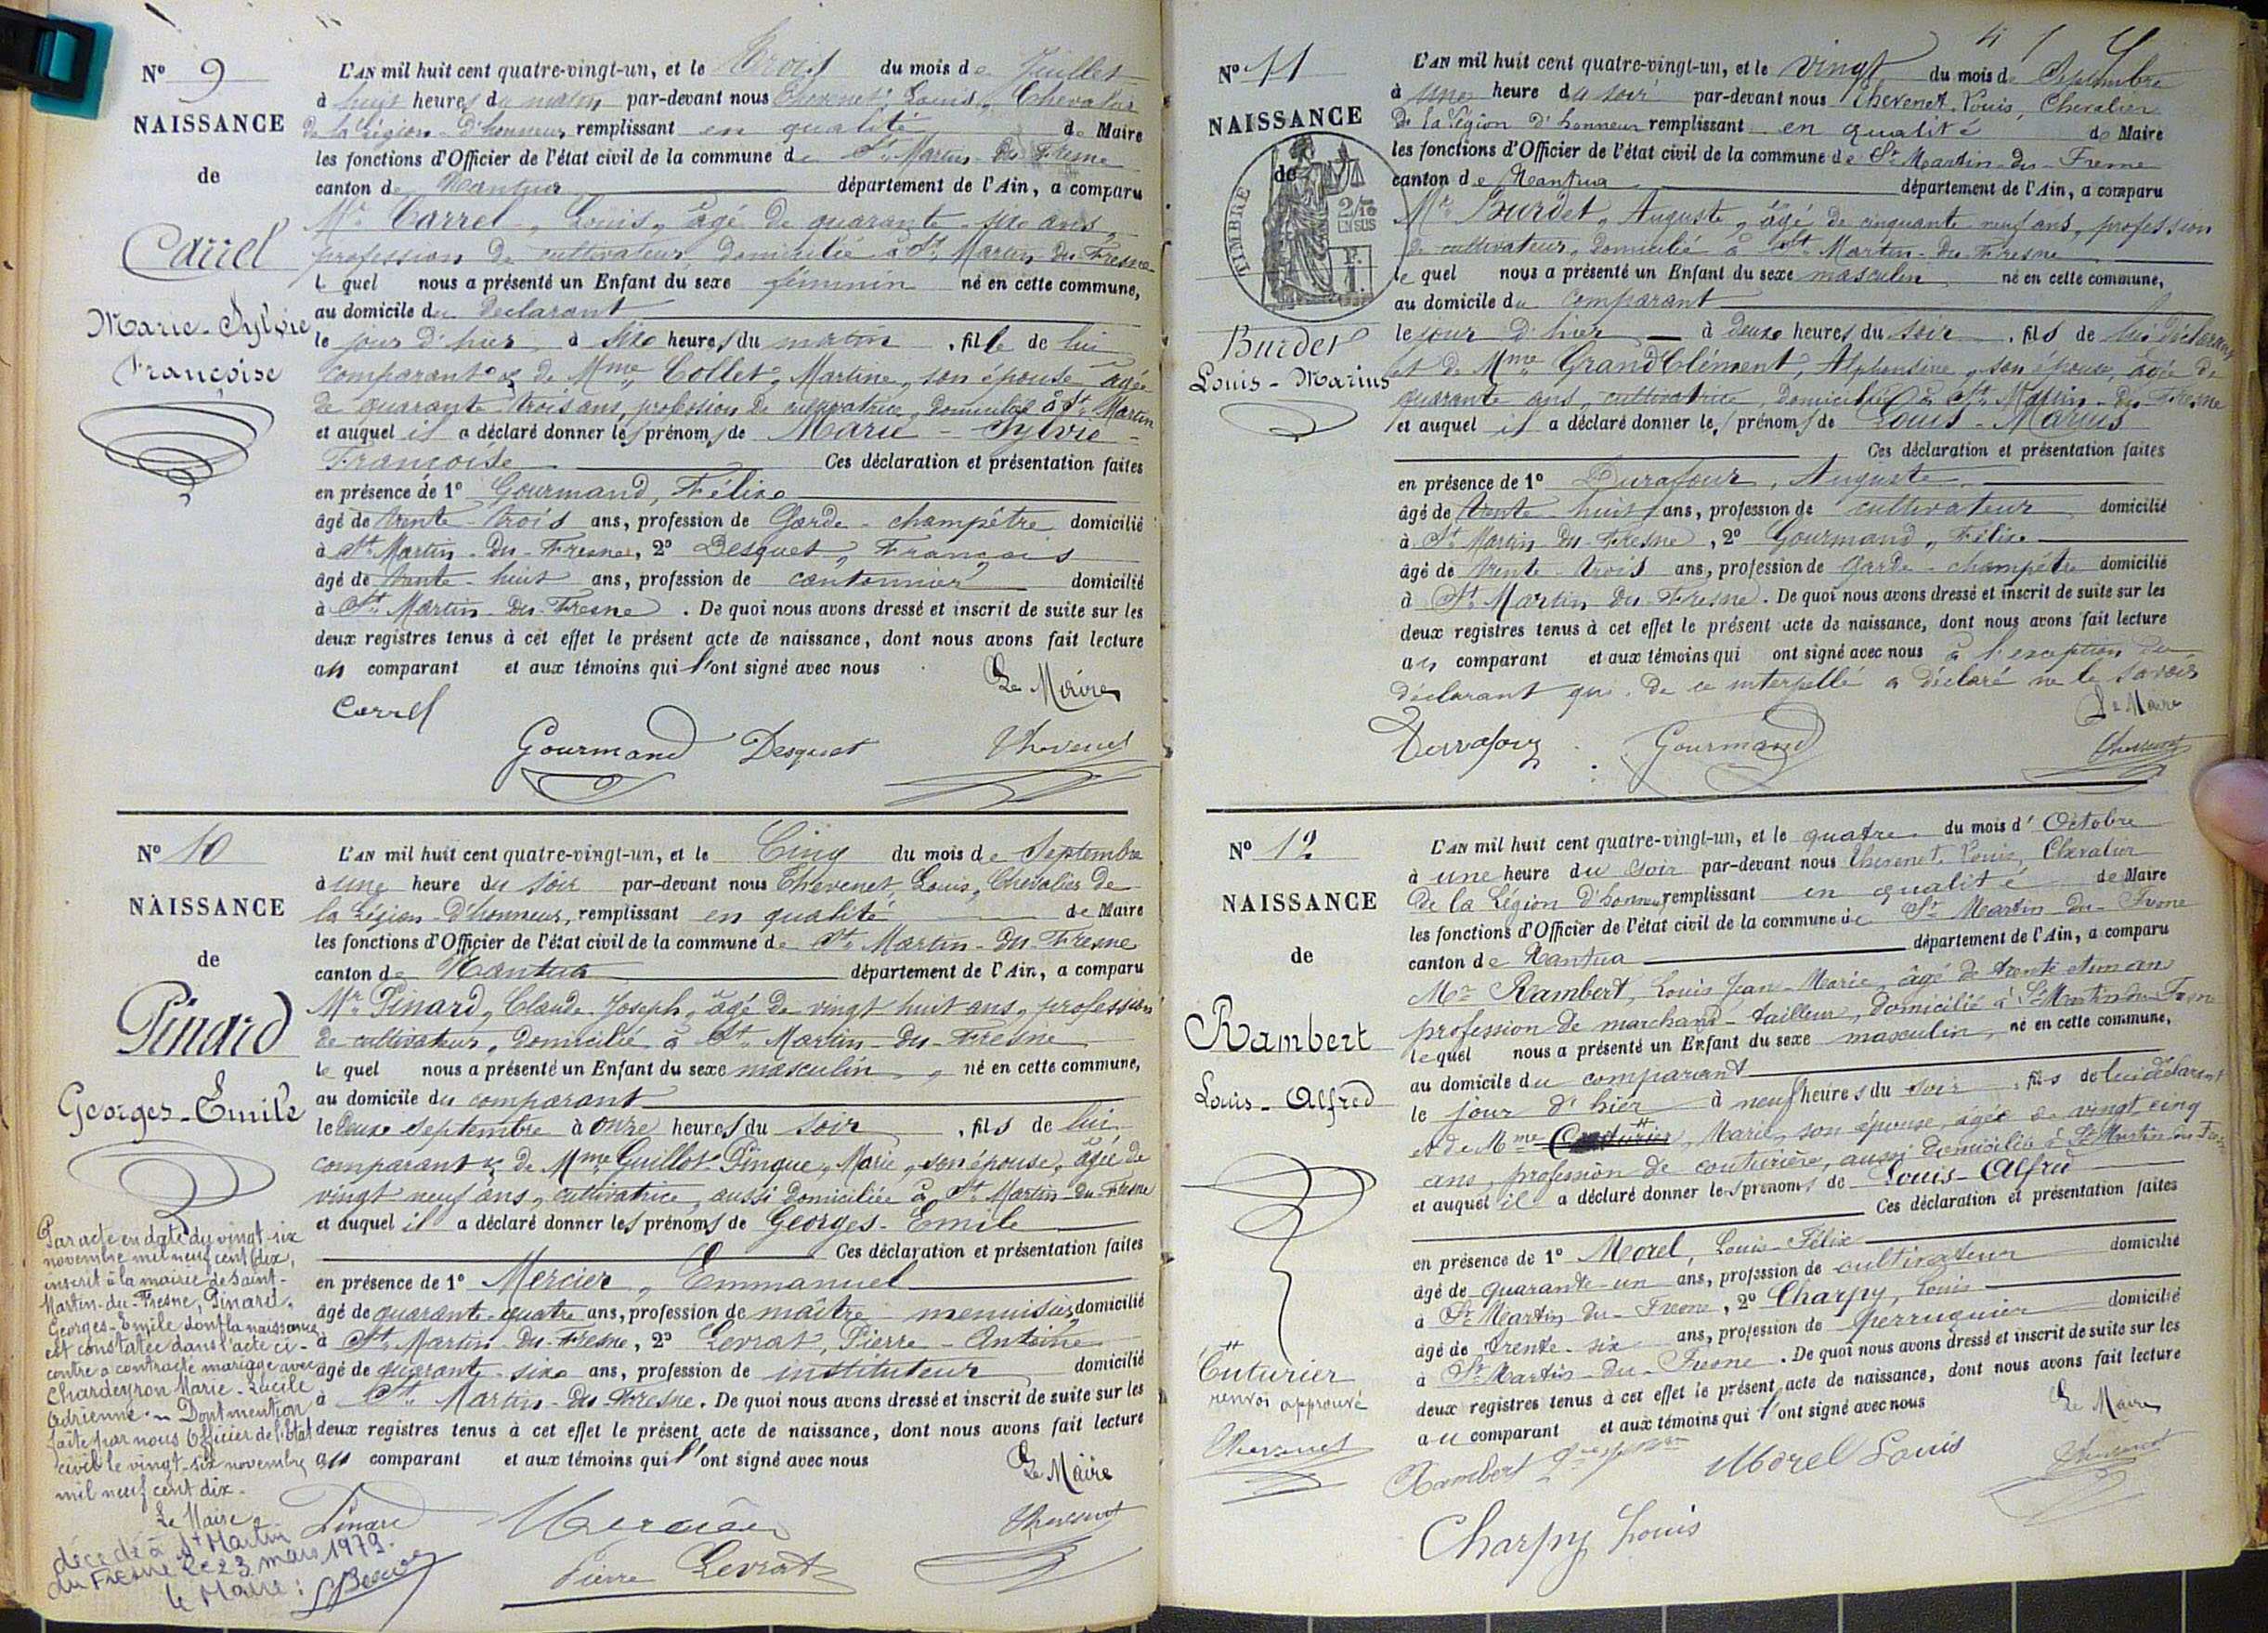 N° 9
NAISSANCE
de
Carrel
Marie-Sylvie
Françoise
L'AN mil huit cent quatre-vingt-un, et le Trois du mois de Juillet
à huit heures du matin par-devant nous Thevenet, Louis, Chevalier
de la Légion-d'honneur, remplissant en qualité de Maire
les fonctions d'Officier de l'état civil de la commune de St. Martin-du-Fresne
canton de Nantua département de l'Ain, a comparu
Mr. Carrel, Louis, âgé de quarante-six ans,
profession de cultivateur domicilié à St. Martin-du-Fresne
le quel nous a présenté un Enfant du sexe féminin né en cette commune,
au domicile du déclarant
le jour d'hier, à six heures du matin, fille de lui
comparant & de Mme Collet, Martine, son épouse âgée
de quarante-trois ans, profession de cultivatrice, domiciliée à St. Martin
et auquel il a déclaré donner les prénoms de Marie-Sylvie-
Françoise Ces déclaration et présentation faites
en présence de 1° Gourmand, Félix
âgé de trente-trois ans, profession de Garde-champêtre domicilié
à St. Martin-du-Fresne, 2° Desquet, François
âgé de trente-huit ans, profession de cantonnier domicilié
à St. Martin-du-Fresne. De quoi nous avons dressé et inscrit de suite sur les
deux registres tenus à cet effet le présent acte de naissance, dont nous avons fait lecture
au comparant et aux témoins qui l'ont signé avec nous
Le Maire
Carrel
Gourmand Desquet Thevenet
N° 10
NAISSANCE
de
Pinard
Georges-Emile
L'AN mil huit cent quatre-vingt-un, et le Cinq du mois de Septembre
à une heure du soir par-devant nous Thevenet Louis, Chevalier de
la Légion-d'honneur, remplissant en qualité de Maire
les fonctions d'Officier de l'état civil de la commune de St. Martin-du-Fresne
canton de Nantua département de l'Ain, a comparu
Mr. Pinard, Claude-Joseph, âgé de vingt huit ans, profession
de cultivateur, domicilié à St. Martin-du-Fresne
le quel nous a présenté un Enfant du sexe masculin, né en cette commune,
au domicile du comparant
le deux septembre à onze heures du soir, fils de lui
comparant & de Mme Guillot-Pingue, Marie, son épouse, âgée de
vingt neuf ans, cultivatrice, aussi domiciliée à St. Martin-du-Fresne
et auquel il a déclaré donner les prénoms de Georges-Emile
Ces déclaration et présentation faites
en présence de 1° Mercier, Emmanuel
âgé de quarante-quatre ans, profession de maître menuisier domicilié
à St. Martin-du-Fresne, 2° Levrat, Pierre-Antoine
âgé de quarante-six ans, profession de instituteur domicilié
à St. Martin-du-Fresne. De quoi nous avons dressé et inscrit de suite sur les
deux registres tenus à cet effet le présent acte de naissance, dont nous avons fait lecture
au comparant et aux témoins qui l'ont signé avec nous
Le Maire
Pinard Mercier Thevenet
Pierre Levrat
Par acte en date du vingt-six
novembre mil neuf cent dix,
inscrit à la mairie de Saint-
Martin-du-Fresne, Pinard,
Georges-Emile dont la naissance
est constatée dans l'acte ci-
contre a contracté mariage avec
Chardeyron Marie-Lucile
Adrienne. Dont mention
faite par nous Officier de l'Etat
civil le vingt-six novembre
mil neuf cent dix.
Le Maire
décédé à St Martin
du Fresne le 23 mars 1979.
le Maire :
4
N° 11
NAISSANCE
de
TIMBRE
2/10
EN SUS
Burdet
Louis-Marius
L'AN mil huit cent quatre-vingt-un, et le vingt du mois de Septembre
à une heure du soir par-devant nous Thevenet, Louis, Chevalier
de la Légion d'honneur remplissant en qualité de Maire
les fonctions d'Officier de l'état civil de la commune de St. Martin-du-Fresne
canton de Nantua département de l'Ain, a comparu
Mr. Burdet, Auguste, âgé de cinquante-neuf ans, profession
de cultivateur, domicilié à St. Martin-du-Fresne
le quel nous a présenté un Enfant du sexe masculin né en cette commune,
au domicile du comparant
le jour d'hier à deux heures du soir, fils de lui déclarant
et de Mme GrandClément, Alphonsine, son épouse, âgée de
quarante ans, cultivatrice, domiciliée à St. Martin-du-Fresne
et auquel il a déclaré donner les prénoms de Louis-Marius
Ces déclaration et présentation faites
en présence de 1° Durafour, Auguste,
âgé de trente huit ans, profession de cultivateur domicilié
à St. Martin-du-Fresne, 2° Gourmand, Félix
âgé de trente-trois ans, profession de Garde-champêtre domicilié
à St. Martin-du-Fresne. De quoi nous avons dressé et inscrit de suite sur les
deux registres tenus à cet effet le présent acte de naissance, dont nous avons fait lecture
au comparant et aux témoins qui ont signé avec nous à l'exception du
déclarant qui, de ce interpellé a déclaré ne le savoir
Le Maire
Durafour Gourmand Thevenet
N° 12
NAISSANCE
de
Rambert
Louis-Alfred
L'AN mil huit cent quatre-vingt-un, et le quatre du mois d'Octobre
à une heure du soir par-devant nous Thevenet, Louis, Chevalier
de la Légion d'honneur remplissant en qualité de Maire
les fonctions d'Officier de l'état civil de la commune de St. Martin-du-Fresne
canton de Nantua département de l'Ain, a comparu
Mr. Rambert, Louis Jean-Marie, âgé de trente et un an
profession de marchand-tailleur, domicilié à St. Martin-du-Fresne
lequel nous a présenté un Enfant du sexe masculin, né en cette commune,
au domicile du comparant
le jour d'hier à neuf heures du soir, fils de lui déclarant
et de Mme , Marie, son épouse, âgée de vingt cinq
ans, profession de couturière, aussi domiciliée à St. Martin-du-Fresne
et auquel il a déclaré donner les prénoms de Louis-Alfred
Ces déclaration et présentation faites
en présence de 1° Morel, Louis-Félix
âgé de quarante-un ans, profession de cultivateur domicilié
à St. Martin-du-Fresne, 2° Charpy, Louis
âgé de trente-six ans, profession de perruquier domicilié
à St. Martin-du-Fresne. De quoi nous avons dressé et inscrit de suite sur les
deux registres tenus à cet effet le présent acte de naissance, dont nous avons fait lecture
au comparant et aux témoins qui l'ont signé avec nous
Le Maire
Rambert Morel Louis Thevenet
Charpy Louis
Cuturier
renvoi approuvé
Thevenet